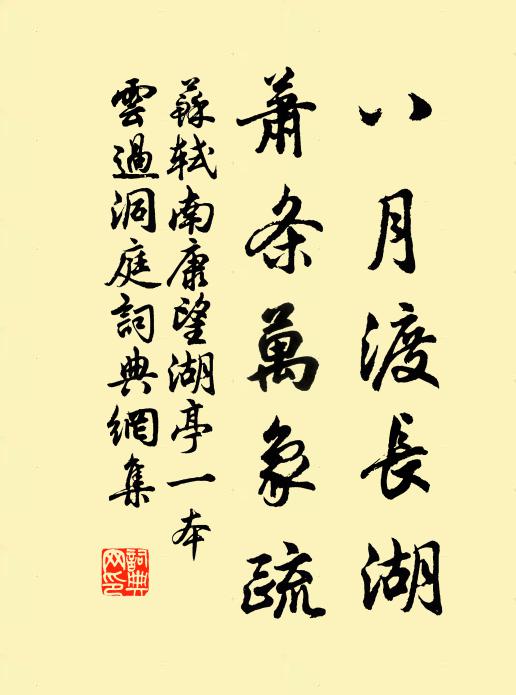 八月渡長湖
蕭条萬象疏
蘇軾南康望湖亭一本
雲過洞庭詞典網集
詞典
网印